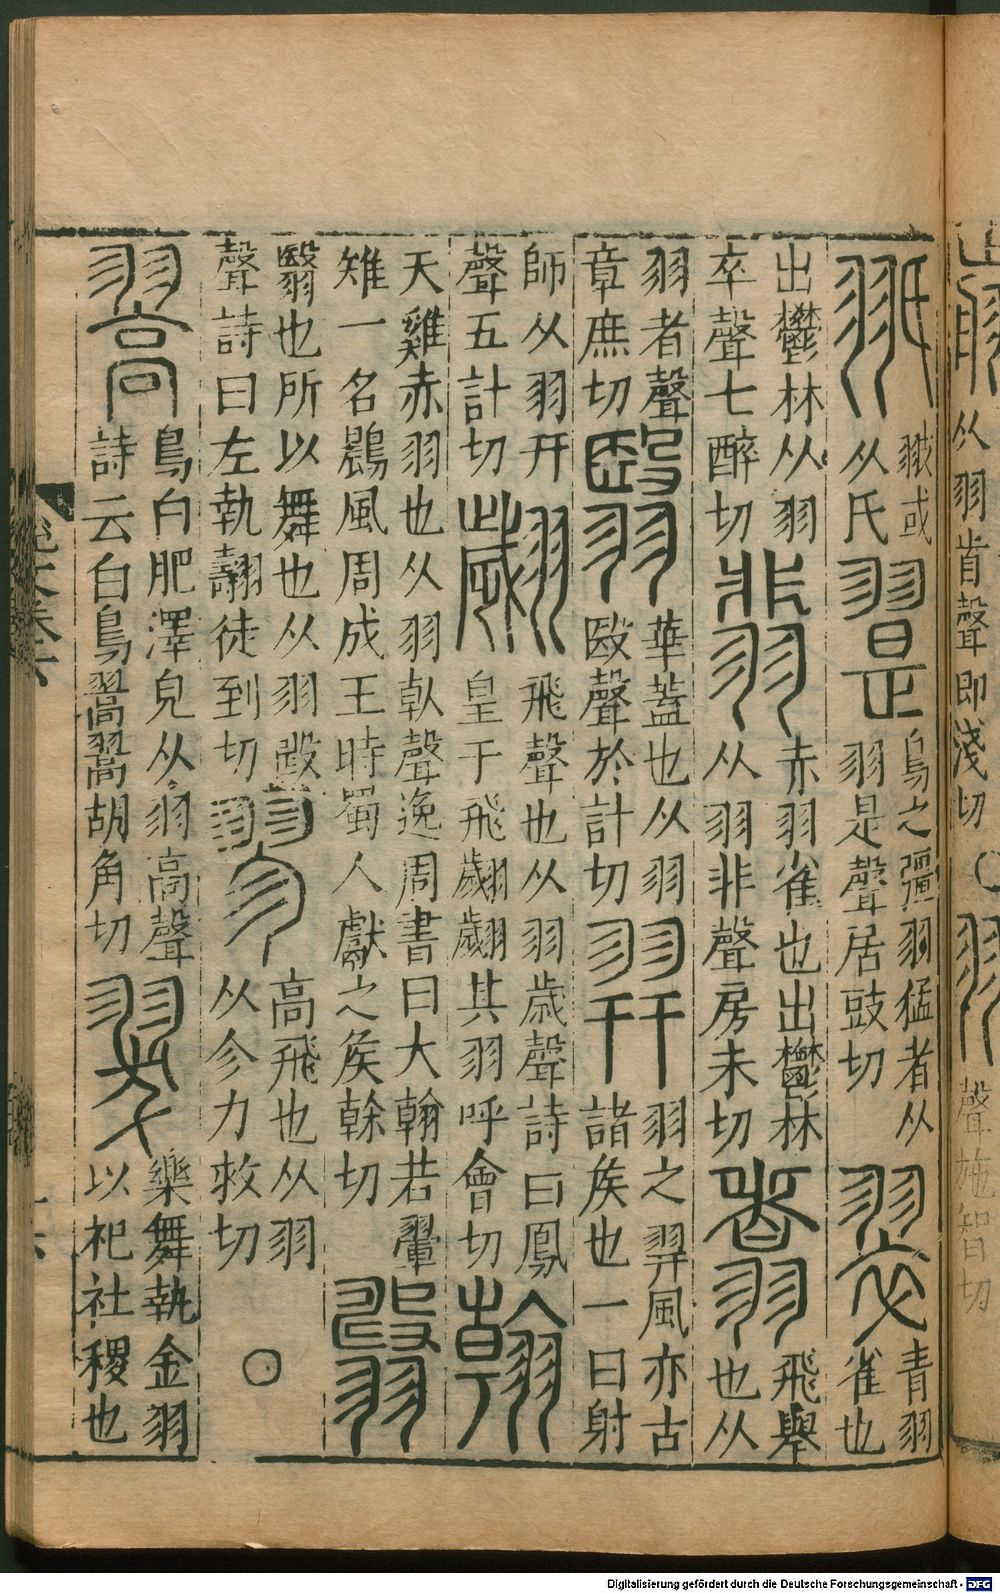 从羽歬聲即淺切 ○ 翄 聲施智切
羽氏 䎀或
从氏
翨 鳥之彊羽猛者从
羽是聲居豉切
翠 青羽
雀也
出鬱林从羽
卒聲七醉切
翡 赤羽雀也出鬱林
从羽非聲房未切
翥 飛舉
也从
羽者聲
章庶切
翳 華蓋也从羽
殹聲於計切
羿 羽之羿風亦古
諸矦也一曰射
師从羽幵
聲五計切
翽 飛聲也从羽歲聲詩曰鳳
皇于飛翽翽其羽呼會切
翰
天雞赤羽也从羽倝聲逸周書曰大翰若翬
雉一名鷐風周成王時蜀人獻之矦榦切
翳也所以舞也从羽
聲詩曰左執翿徒到切
翏 高飛也从羽
从㐱力救切
○
翯 鳥白肥澤皃从羽高聲
詩云白鳥翯翯胡角切
翇 樂舞執金羽
以祀社稷也
Digitalisierung gefördert durch die Deutsche Forschungsgemeinschaft - DFG